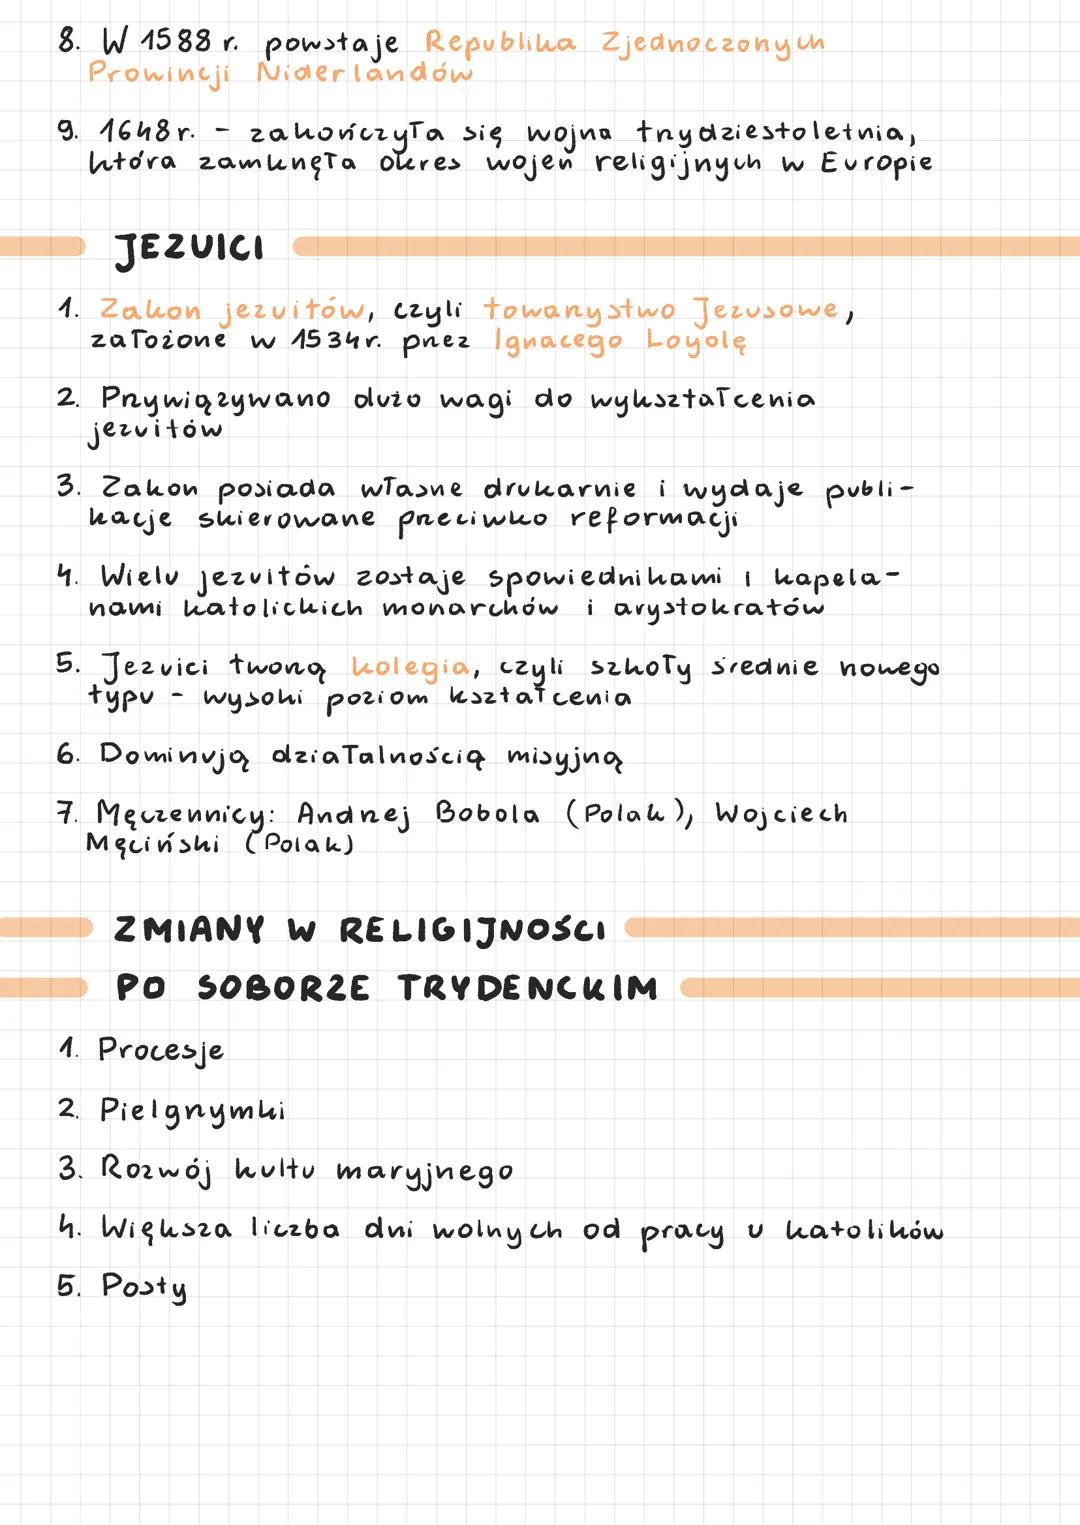 8. W 1588 r. powstaje Republika Zjednoczonych
Prowincji Niderlandów
9. 1648 r. - zakończyła się wojna trzydziestoletnia,
która zamknęła okres wojen religijnych w Europie
JEZUICI
1. Zakon jezuitów, czyli towarzystwo Jezusowe,
założone w 1534 r. przez Ignacego Loyolę
2. Przywiązywano dużo wagi do wykształcenia
jezuitów
3. Zakon posiada własne drukarnie i wydaje publi-
kacje skierowane przeciwko reformacji
4. Wielu jezuitów zostaje spowiednikami i kapela-
nami katolickich monarchów i arystokratów
5. Jezuici tworzą kolegia, czyli szkoły średnie nowego
typu - wysoki poziom kształcenia
6. Dominują działalnością misyjną
7. Męczennicy: Andrzej Bobola (Polak), Wojciech
Męciński (Polak)
ZMIANY W RELIGIJNOŚCI
PO SOBORZE TRYDENCKIM
1. Procesje
2. Pielgrzymki
3. Rozwój kultu maryjnego
4. Większa liczba dni wolnych od pracy u katolików
5. Posty